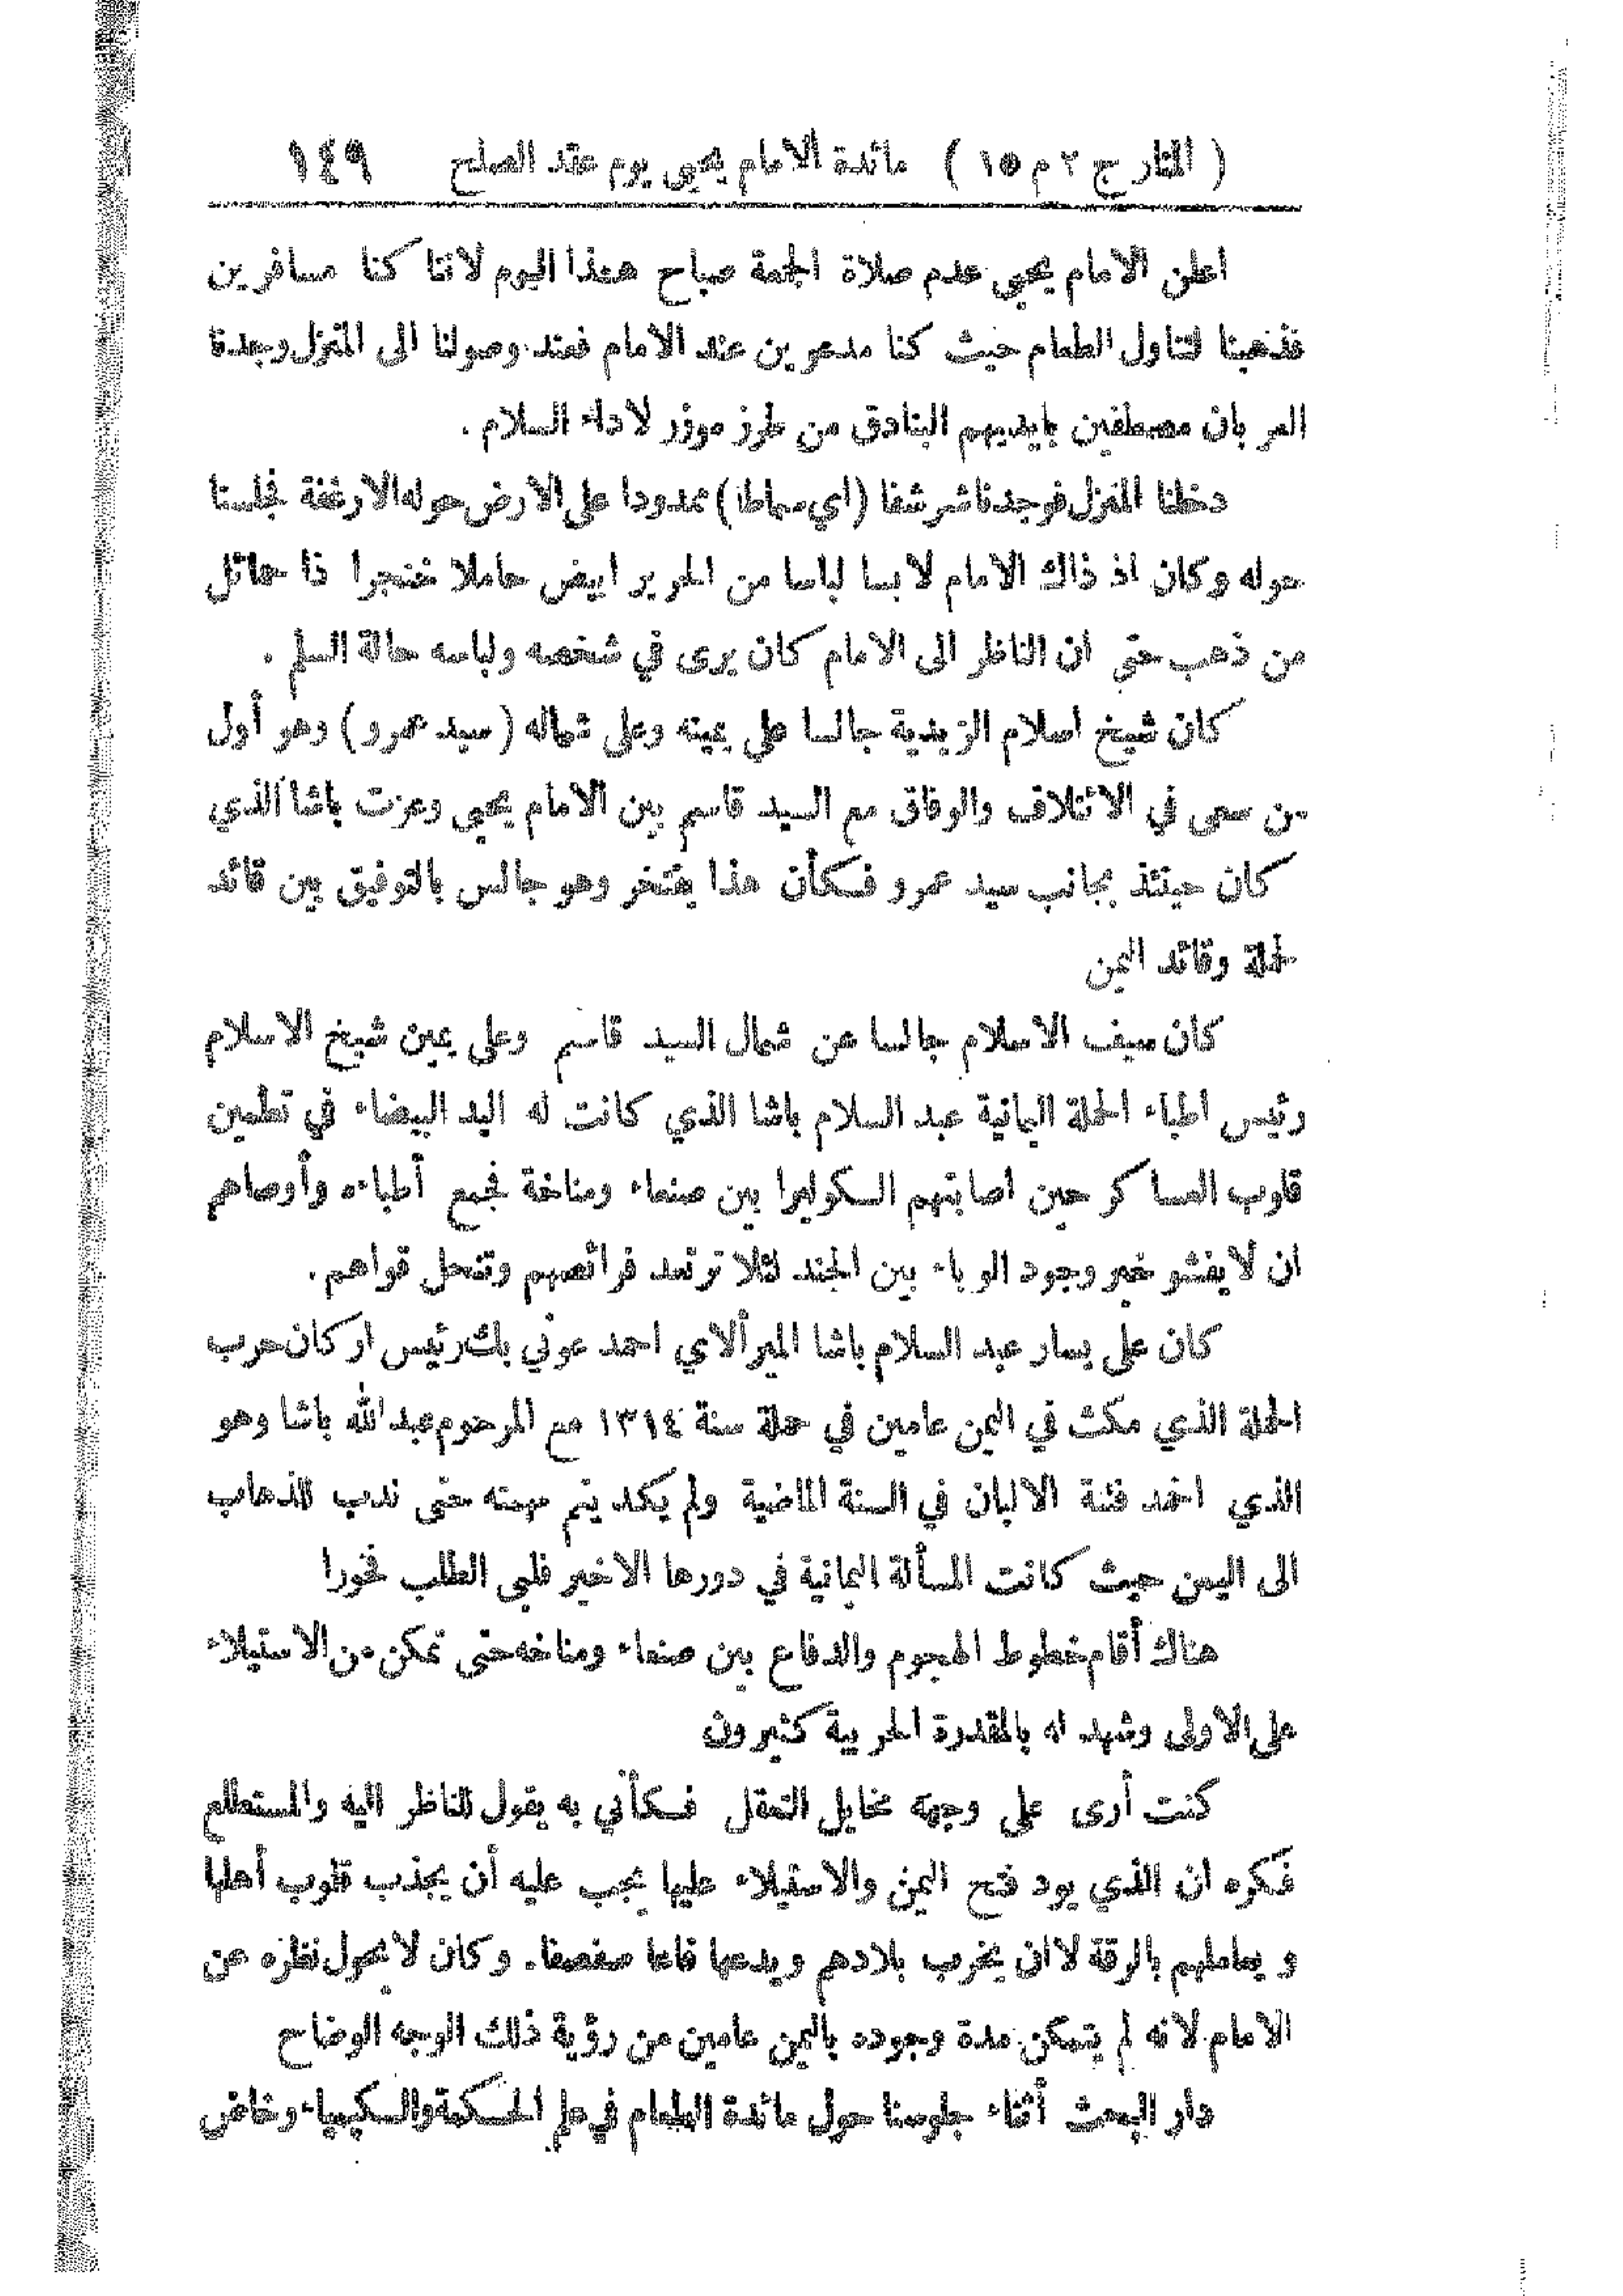 ( المنار ج ٢ م ١٥ ) مائدة الامام يحيى يوم عقد الصلح ١٤٩
اعلن الامام يحيى عدم صلاة الجمعة صباح هذا اليوم لاننا كنا مسافرين
فذهبنا لتناول الطعام حيث كنا مدعوين عند الامام فعند وصولنا الى المنزل وجدنا
العربان مصطفين بايديهم البنادق من طرز موزر لاداء السلام .
دخلنا المنزل فوجدنا شرشفا (اي سماطا) ممدودا على الارض حوله الارغفة فجلسنا
حوله وكان اذ ذاك الامام لابسا لباسا من الحرير ابيض حاملا خنجرا ذا حمائل
من ذهب حتى ان الناظر الى الامام كان يرى في شخصه ولباسه حالة السلم .
كان شيخ اسلام الزيدية جالسا على يمينه وعلى شماله (سيد عمرو) وهو أول
من سعى في الائتلاف والوفاق مع السيد قاسم بين الامام يحيى وعزت باشا الذي
كان حينئذ بجانب سيد عمرو فكأن هذا يفتخر وهو جالس بالتوفيق بين قائد
حملة وقائد اليمن
كان سيف الاسلام جالسا عن شمال السيد قاسم وعلى يمين شيخ الاسلام
رئيس اطباء الحملة اليمانية عبد السلام باشا الذي كانت له اليد البيضاء في تطمين
قلوب العساكر حين اصابتهم الكوليرا بين صنعاء ومناخة فجمع أطباءه وأوصاهم
ان لا يفشو خبر وجود الوباء بين الجند لئلا ترتعد فرائصهم وتنحل قواهم .
كان على يسار عبد السلام باشا الميرألاي احمد عوني بك رئيس اركان حرب
الحملة الذي مكث في اليمن عامين في حملة سنة ١٣١٤ مع المرحوم عبد الله باشا وهو
الذي اخمد فتنة الالبان في السنة الماضية ولم يكد يتم مهمته حتى ندب للذهاب
الى اليمن حيث كانت المسألة اليمانية في دورها الاخير فلبى الطلب فخورا
هناك أقام خطوط الهجوم والدفاع بين صنعاء ومناخه حتى تمكن من الاستيلاء
على الاولى وشهد له بالمقدرة الحربية كثيرون
كنت أرى على وجهه مخايل التعقل فكأني به يقول للناظر اليه والمستطلع
فكره ان الذي يود فتح اليمن والاستيلاء عليها يجب عليه أن يجذب قلوب أهلها
ويعاملهم بالرقة لا ان يخرب بلادهم ويدعها قاعا صفصفا. وكان لا يحول نظره عن
الامام لانه لم يتمكن مدة وجوده باليمن عامين من رؤية ذلك الوجه الوضاح
دار البحث أثناء جلوسنا حول مائدة الطعام في علم الحكمة والكيمياء وخاض